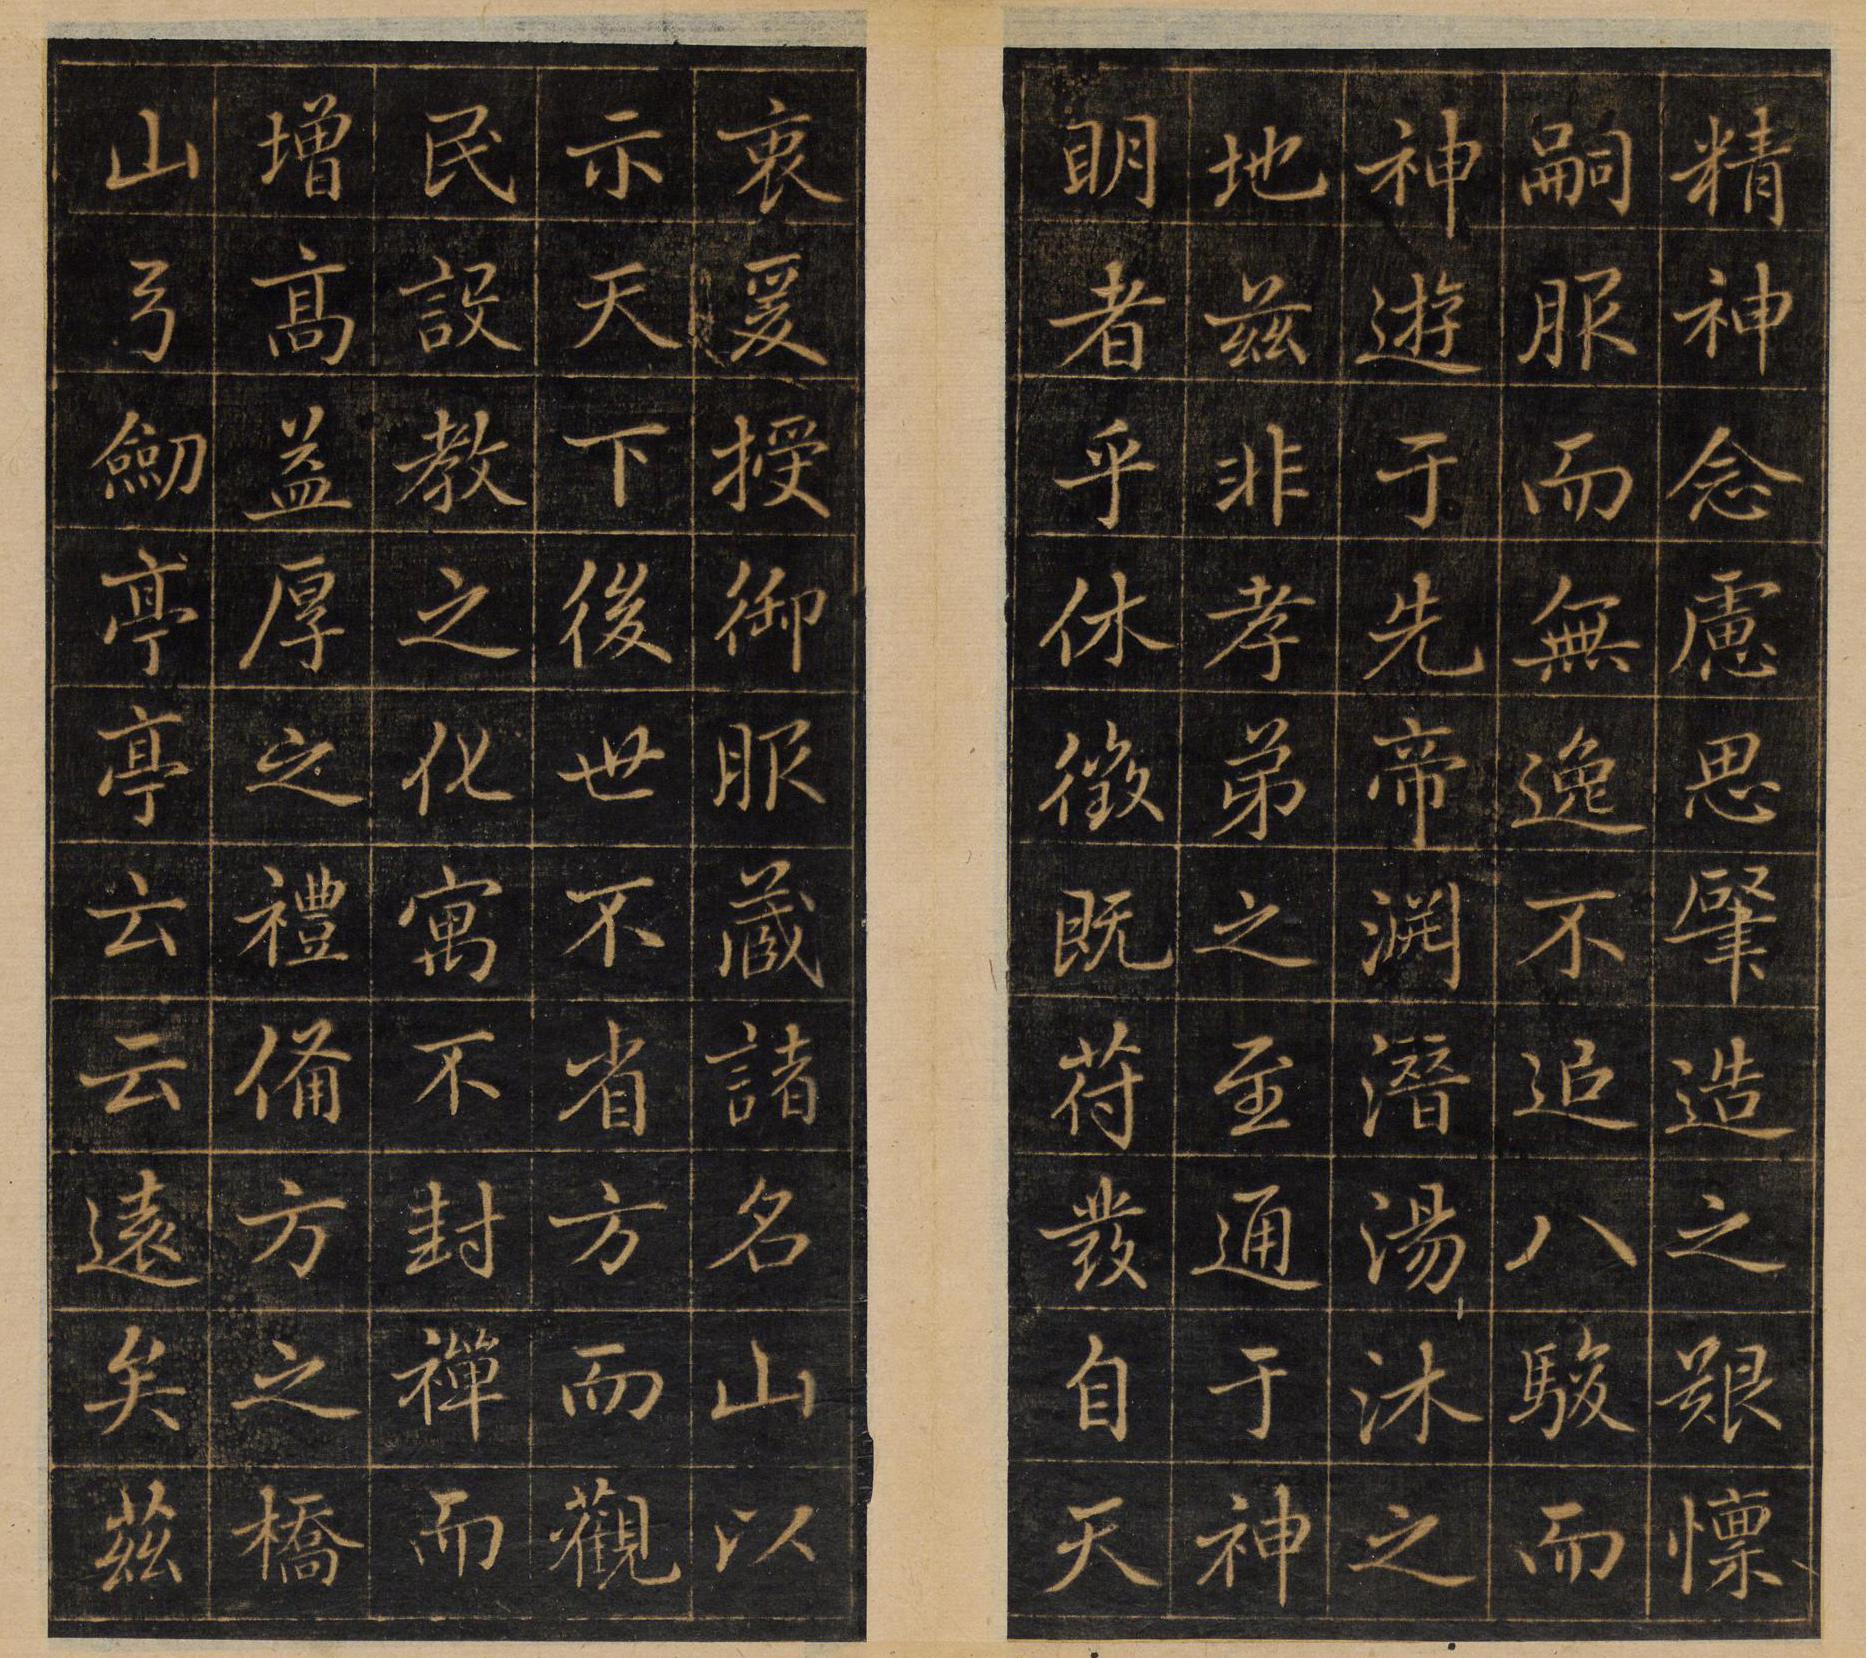 精神念慮思肇造之艱懍
嗣服而無逸不追八駿而
神遊于先帝渊潛湯沐之
地茲非孝弟之至通于神
明者乎休徵既苻發自天
衷爰授御服蔵諸名山以
示天下後世不省方而觀
民設教之化寓不封禪而
增髙益厚之禮備方之橋
山弓劒亭亭云云遠矣茲